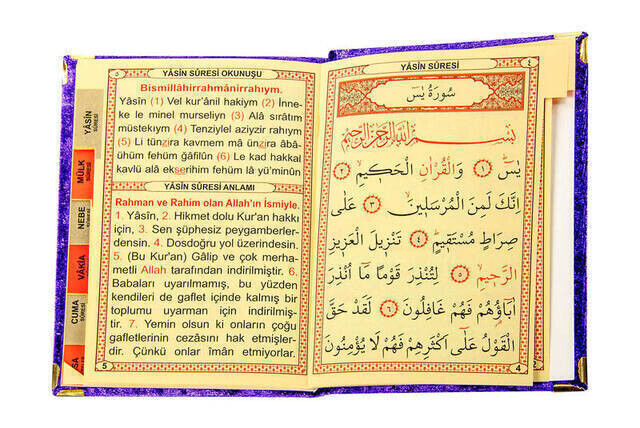 ٥
YÂSİN SÛRESİ OKUNUŞU
Bismillâhirrahmânirrahıym.
Yâsîn (1) Vel kur'ânil hakiym (2) İnne-
ke le minel murseliyn (3) Alâ sırâtım
müstekıym (4) Tenziylel aziyzir rahıym
(5) Li tünzira kavmem mâ ünzira âbâ-
ühüm fehüm gâfilûn (6) Le kad hakkal
kavlü alâ ekserihim fehüm lâ yü'minûn
YÂSİN SÛRESİ ANLAMI
Rahman ve Rahim olan Allah'ın İsmiyle.
1. Yâsîn, 2. Hikmet dolu Kur'an hakkı
için, 3. Sen şüphesiz peygamberler-
densin. 4. Dosdoğru yol üzerindesin.
5. (Bu Kur'an) Gâlip ve çok merha-
metli Allah tarafından indirilmiştir. 6.
Babaları uyarılmamış, bu yüzden
kendileri de gaflet içinde kalmış bir
toplumu uyarman için indirilmiş-
tir. 7. Yemin olsun ki onların çoğu
gafletlerinin cezasını hak etmişler-
dir. Çünkü onlar îman etmiyorlar.
5
YÂSİN
SÛRESİ
MÜLK
SÛRESİ
NEBE
SÛRESİ
VÂKIA
SÛRESİ
CUMA
SÛRESİ
YÂSİN SÛRESİ
٤
سُورَةُ يٰسٓ
بِسْمِ اللّٰهِ الرَّحْمٰنِ الرَّحِيمِ
يٰسٓ ﴿١﴾ وَالْقُرْاٰنِ الْحَكِيمِ ﴿٢﴾
اِنَّكَ لَمِنَ الْمُرْسَلِينَ ﴿٣﴾ عَلٰى
صِرَاطٍ مُسْتَقِيمٍ ﴿٤﴾ تَنْزِيلَ الْعَزِيزِ
الرَّحِيمِ ﴿٥﴾ لِتُنْذِرَ قَوْمًا مَٓا اُنْذِرَ
اٰبَٓاؤُهُمْ فَهُمْ غَافِلُونَ ﴿٦﴾ لَقَدْ حَقَّ
الْقَوْلُ عَلٰٓى اَكْثَرِهِمْ فَهُمْ لَا يُؤْمِنُونَ
4
2